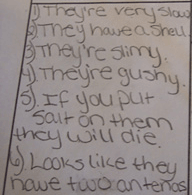 1) They're very slow
2) They have a shell
3) They're slimy.
4) They're gushy.
5). If you put
salt on them
they will die.
6). Looks like they
have two antenas